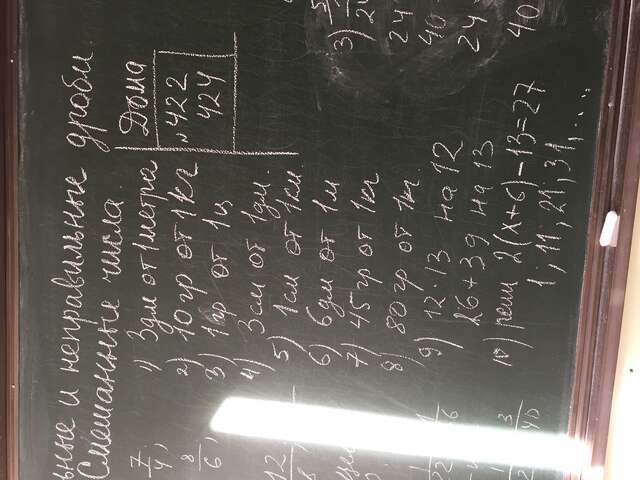 ьные и неправильные дроби
Смешанные числа
7/4,
8/6,
12/8
1) 3дм от 1метра
2) 10 гр от 1 кг
3) 1 гр от 1ц
4) 3см от 1дм.
5) 1см от 1км.
6) 6дм от 1м
7) 45 гр от 1кг
8) 80 гр от 1кг.
9) 12·13 на 12
26+39 на 13
10) реши 2(х+6)-13=27
1; 11; 21; 31, ....
Дома
№422
424
3)
24
40
24
40